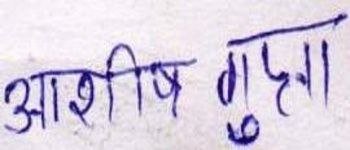 आशीष गुप्ता